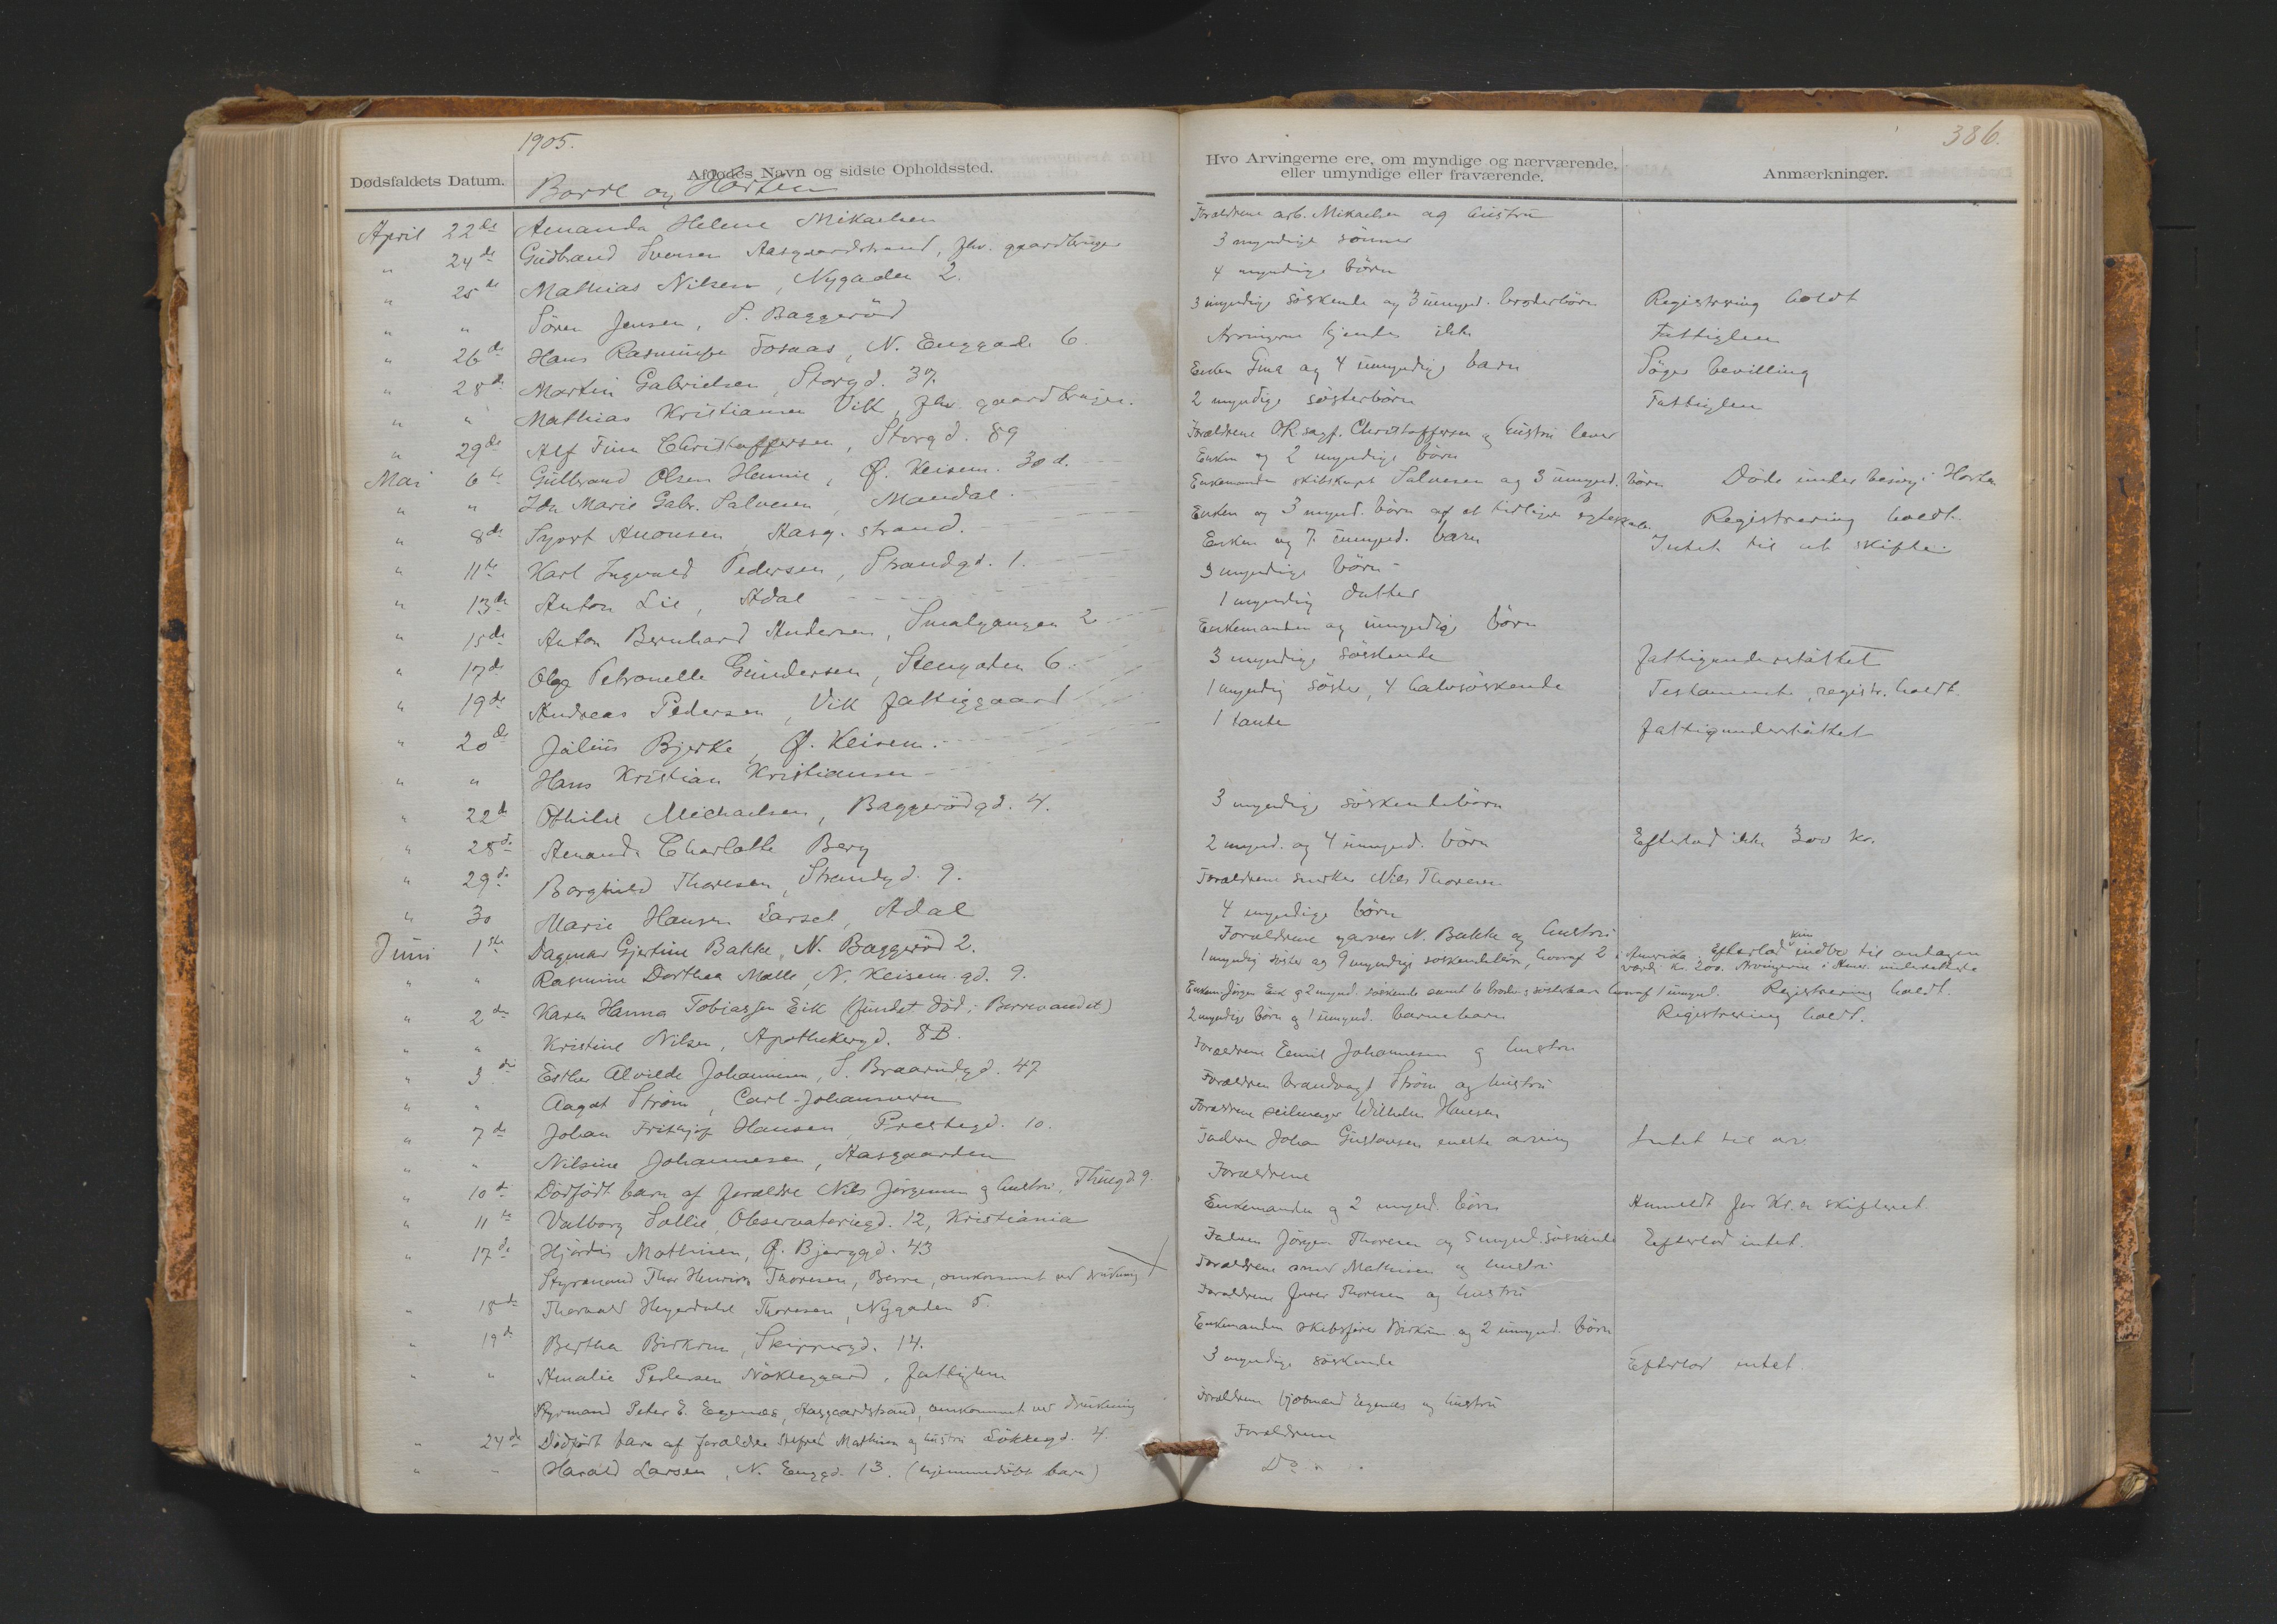 1905.
Dødsfaldets Datum.
Afdødes Navn og sidste Opholdssted.
Borre og Horten
April 22de Amanda Helene Mikaelsen
" 24de Gudbrand Iversen Aasgaardstrand, fhv. gaardbruger
" 25de Mathias Nilsen, Nygaden 2.
" " Sören Jensen, S. Baggeröd
" 26de Hans Rasmussen Tosaas, N. Enggade 6
" 28de Martin Gabrielsen, Storgd. 37.
" " Mathias Kristiansen Vik, fhv. gaardbruger.
" 29de Alf Finn Christoffersen, Storgd. 89
Mai 6te Gulbrand Olsen Hennie, Ø. Keisem. 30 d.
" " Ida Marie Gabr. Salvesen, Mandal.
" 8de Syvert Anonsen, Aasg. strand.
" 11te Karl Ingvald Pedersen, Strandgd. 1.
" 13de Anton Lie, Adal
" 15de Anton Bernhard Andersen, Smalgangen 2
" 17de Olga Petronelle Gundersen, Stengaden 6.
" 19de Andreas Pedersen, Vik fattiggaard
" 20de Julius Bjerke, Ø. Keisem.
" " Hans Kristian Kristiansen
" 22de Othilie Michaelsen, Baggerödgd. 4.
" 28de Amanda Charlotte Berg
" 29de Borghild Thoresen, Strandgd. 9.
" 30 Marie Hansen Sarset, Adal
Juni 1ste Dagmar Gjertine Bakke, N. Baggeröd 2.
" " Rasmine Dorthea Malle, N. Keisem. gd. 9.
" 2den Karen Hanna Tobiassen Eik (fundet död i Borrevandet)
" " Kristine Nilsen, Apothekergd. 8B.
" 3die Esther Alvilde Johannesen, S. Braarudgd. 47
" " Aagot Ström, Carl-Johansvern
" 7de Johan Fritjof Hansen, Prestegd. 10.
" " Nilsine Johannesen, Aasgaarden
" 10de Dödfödt barn af forældre Nils Jörgensen og hustru, Thuegd 9.
" 11te Valborg Sollie, Observatoriegd. 12, Kristiania
" 17de Hjördis Mathisen, Ø. Bjerggd. 43
Styrmand Thor Henrik Thoresen, Borre, omkommet ved drukning
" 18de Thorvald Heyerdahl Thoresen, Nygaden 5.
" 19de Bertha Birkrem, Skippergd. 14.
" " Amalie Pedersen Nökleggaard, fattiglem
Styrmand Peter E. Eegenæs, Aasgaardstrand, omkommet ved drukning
" 24de Dödfödt barn af forældre Sigfred Mathisen og hustru Lökkegd. 4.
" " Harald Larsen, N. Enggd. 13. (hjemmedöbt barn)
386.
Hvo Arvingerne ere, om myndige og nærværende, eller umyndige eller fraværende.
Anmærkninger.
Forældrene arb. Mikaelsen og hustru
3 myndige sönner
4 myndige börn
3 myndige söskende og 3 umynd. broderbörn Registrering holdt
Arvingerne kjendes ikke Fattiglem
Enken Gina og 4 umyndige barn Söger bevilling
2 myndige sösterbörn Fattiglem
Forældrene OR.sagf. Christoffersen og hustru lever
Enken og 2 myndige börn
Enkemanden skibskapt Salvesen og 3 umynd. börn Döde under besög i Horten
Enken og 3 mynd. börn af et tidligere egteskab Registrering holdt.
Enken og 7 umynd. barn Intet til at skifte.
3 myndige börn
1 myndig datter
Enkemanden og umyndige börn
3 myndige söskende fattigunderstöttet
1 myndig söster, 4 halvsöskende Testamente, registr. holdt.
1 tante fattigunderstöttet
3 myndige söskendebörn
2 mynd. og 4 umynd. börn Efterlod ikke 300 kr.
Forældrene snekker Nils Thoresen
4 myndige börn
Forældrene garver N. Bakke og hustru
1 myndig söster og 9 myndige söskendebörn, hvoraf 2 i Amerika. Efterlod kun indbo til antagen
værdi kr. 200. Arvingerne i Amer. underrettede
Enkem. Jörgen Eik og 2 mynd. söskende samt 6 broder og sösterbarn hvoraf 1 umynd. Registrering holdt.
2 myndige börn og 1 umynd. barnebarn Registrering holdt.
Forældrene Eemil Johannesen og hustru
Forældrene brandvagt Ström og hustru
Forældrene seilmager Wilhelm Hansen
Faderen Johan Gustavsen eneste arving Intet til arv
Forældrene
Enkemanden og 2 mynd. börn Anmeldt for Kr.a skifteret.
Faderen Jörgen Thoresen og 5 mynd. söskende Efterlod intet.
Forældrene Mathisen og hustru
Forældrene Thoresen og hustru
Enkemanden skibsförer Birkrem og 2 umynd. börn
3 myndige söskende Efterlod intet.
Forældrene kjöbmand Eegenæs og hustru
Forældrene
Do